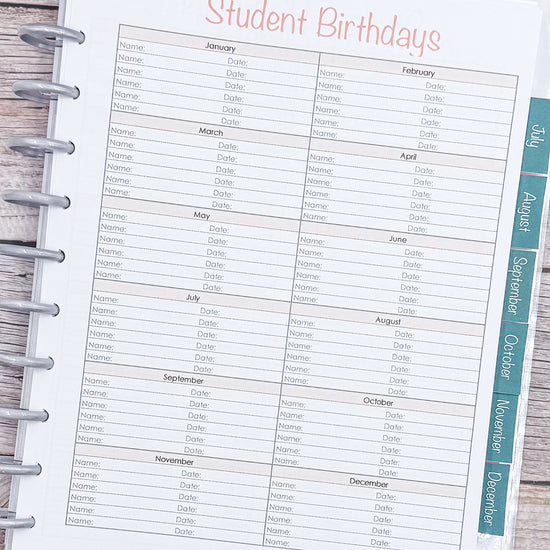 Student Birthdays
January
Name: Date:
Name: Date:
Name: Date:
Name: Date:
Name: Date:
Name: Date:
February
Name: Date:
Name: Date:
Name: Date:
Name: Date:
Name: Date:
Name: Date:
March
Name: Date:
Name: Date:
Name: Date:
Name: Date:
Name: Date:
Name: Date:
April
Name: Date:
Name: Date:
Name: Date:
Name: Date:
Name: Date:
Name: Date:
May
Name: Date:
Name: Date:
Name: Date:
Name: Date:
Name: Date:
Name: Date:
June
Name: Date:
Name: Date:
Name: Date:
Name: Date:
Name: Date:
Name: Date:
July
Name: Date:
Name: Date:
Name: Date:
Name: Date:
Name: Date:
Name: Date:
August
Name: Date:
Name: Date:
Name: Date:
Name: Date:
Name: Date:
Name: Date:
September
Name: Date:
Name: Date:
Name: Date:
Name: Date:
Name: Date:
Name: Date:
October
Name: Date:
Name: Date:
Name: Date:
Name: Date:
Name: Date:
Name: Date:
November
Name: Date:
Name: Date:
Name: Date:
Name: Date:
Name: Date:
Name: Date:
December
Name: Date:
Name: Date:
Name: Date:
Name: Date:
Name: Date:
Name: Date:
July
August
September
October
November
December